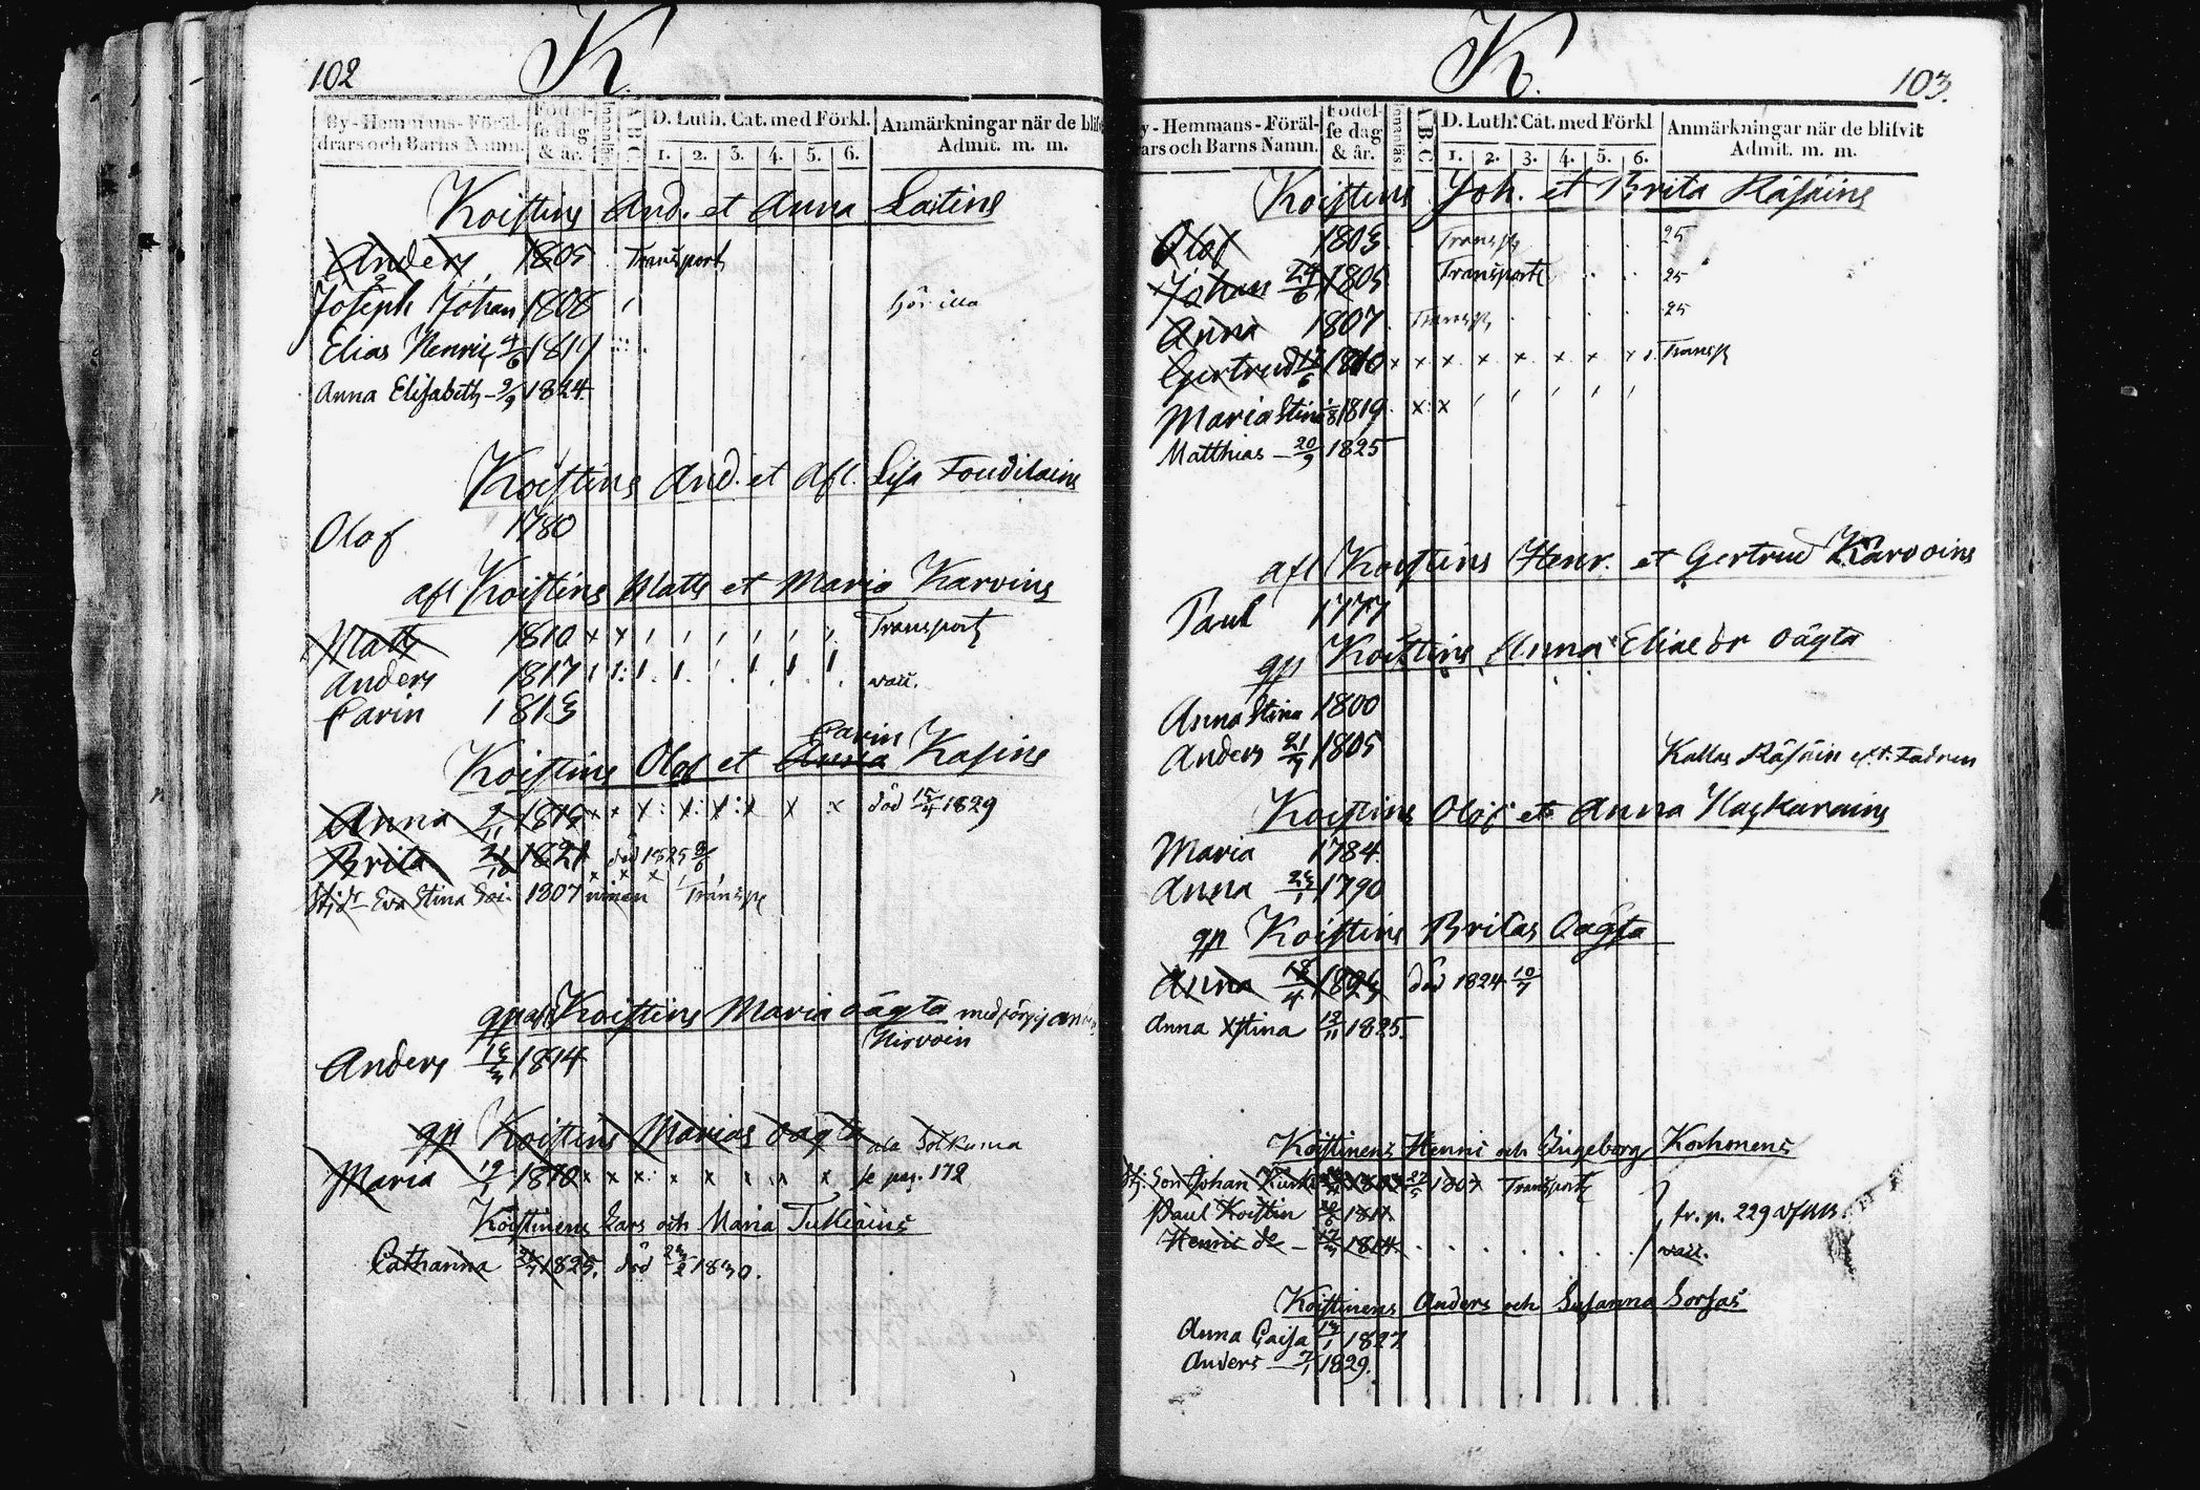 102
K.
By-Hemmans-Föräl-
drars och Barns Namn.
Födel-
se dag
& år.
Innanläs
A B C
D. Luth. Cat. med Förkl.
1. 2. 3. 4. 5. 6.
Anmärkningar när de blif
Admit. m. m.
Koistins And. et Anna Laitins
Anders 1805 Transport
Joseph Johan 1808 hör illa
Elias Henric 1819
Anna Elisabeth 2/9 1824
Koistins And. et afl. Lisa
Olof 1780
afl Koistins Matts et Maria Karvins
Matts 1810 x x Transport
Anders 1817 vall.
Carin 1813
Carin
Koistins Olof et Anna Kasins
Anna 1815 x x x x x x x x död 15/4 1829
Brita 1821 död 1825
Eva Stina 1807 Transp
Koistins Maria oägta med
Hirvoin
Anders 1814
qp Koistins Marias oägta
Maria 1810 x x x x x x x x se pag. 172
Koistinens Lars och Maria
Catharina 1825. död 1830.
K.
103.
y-Hemmans-Föräl-
ars och Barns Namn.
Födel-
se dag
& år.
Innanläs
A B C
D. Luth. Cat. med Förkl
1. 2. 3. 4. 5. 6.
Anmärkningar när de blifvit
Admit. m. m.
Koistins Joh. et Brita Räsäins
Olof 1803 Transp 25
Johan 24/6 1805 Transport 25
Anna 1807 Transp 25
Gertrud 1810 x x x x x x x x Transp
Maria Stina 1819 x x
Matthias 20/9 1825
afl Koistins Henr. et Gertrud Karvoins
Paul 1777
qp Koistins Anna Eliae dr oägta
Anna Stina 1800
Anders 1805 Kallas Räsäin Fadren
Koistins Olof et Anna
Maria 1784
Anna 1790
qp Koistins Britas oägta
Anna 18/4 1823 död 1824 10/7
Anna Xstina 12/11 1825.
Koistinens Henric och Ingeborg Korhonens
Son Johan 1807 Transport
Paul Koistin 1811 tr. p. 229
Henric do 1814 vall.
Koistinens Anders och Susanna Sorsas
Anna Caisa 1827
Anders 1829.